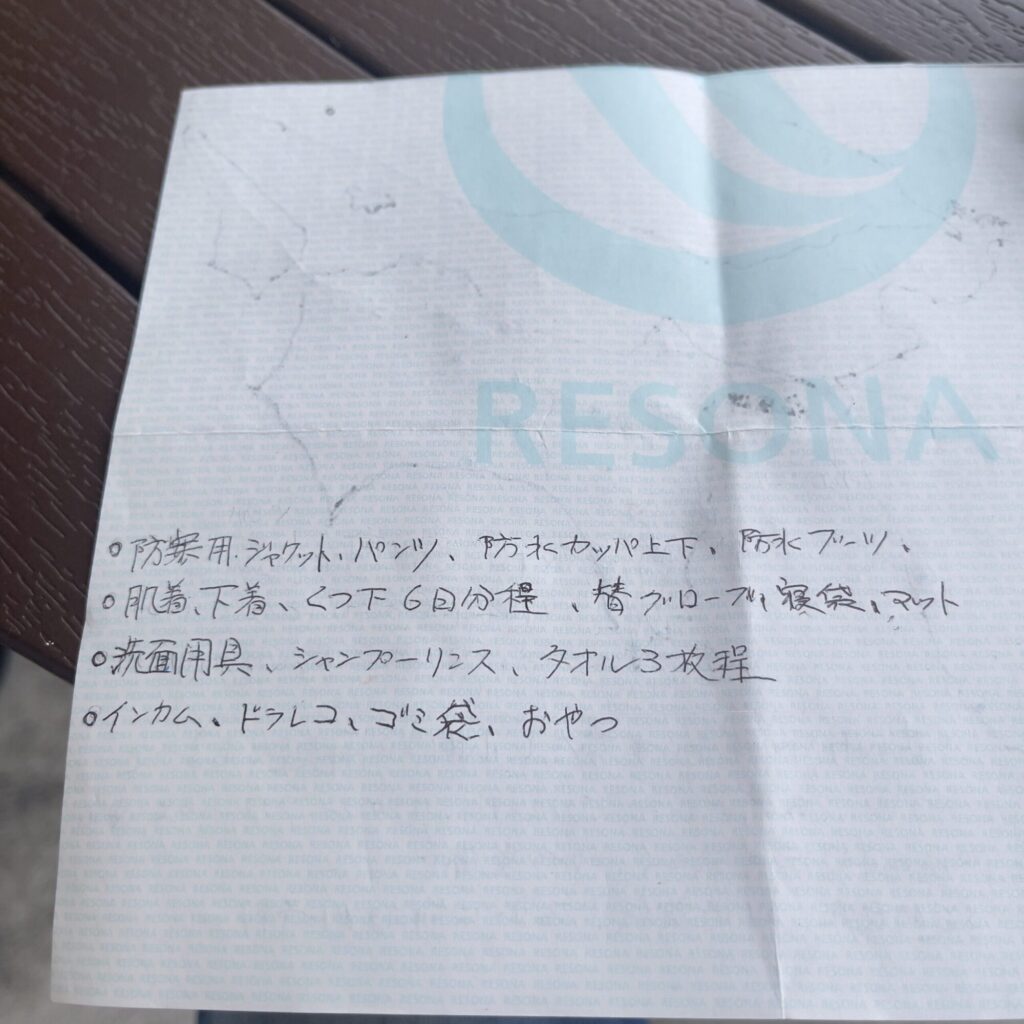 RESONA
○防寒用.ジャケット、パンツ、防水カッパ上下、防水ブーツ、
○肌着、下着、くつ下 6日分程、替グローブ、寝袋、マット
○洗面用具、シャンプーリンス、タオル3枚程
○インカム、ドラレコ、ゴミ袋、おやつ